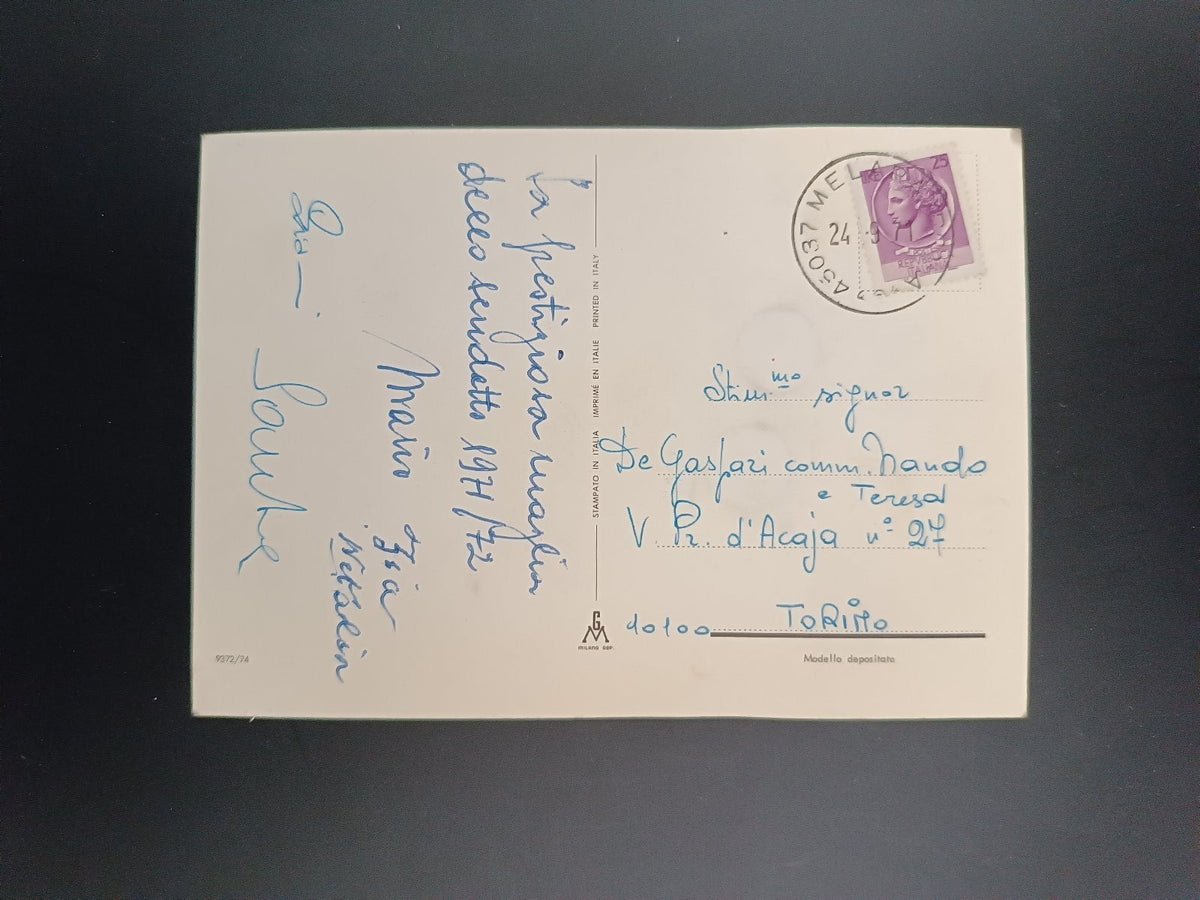 La prestigiosa maglia
dello scudetto 1971/72
Mario
Zia
Natalia
STAMPATO IN ITALIA IMPRIMÉ EN ITALIE PRINTED IN ITALY
GM
MILANO DEP.
9372/74
45037 MELARA
24 9 71
25
REPUBBLICA
ITALIANA
Stim.mo signor
De Gaspari comm. Nando
e Teresa
V. Pr. d'Acaja n° 27
10100 TORINO
Modello depositato